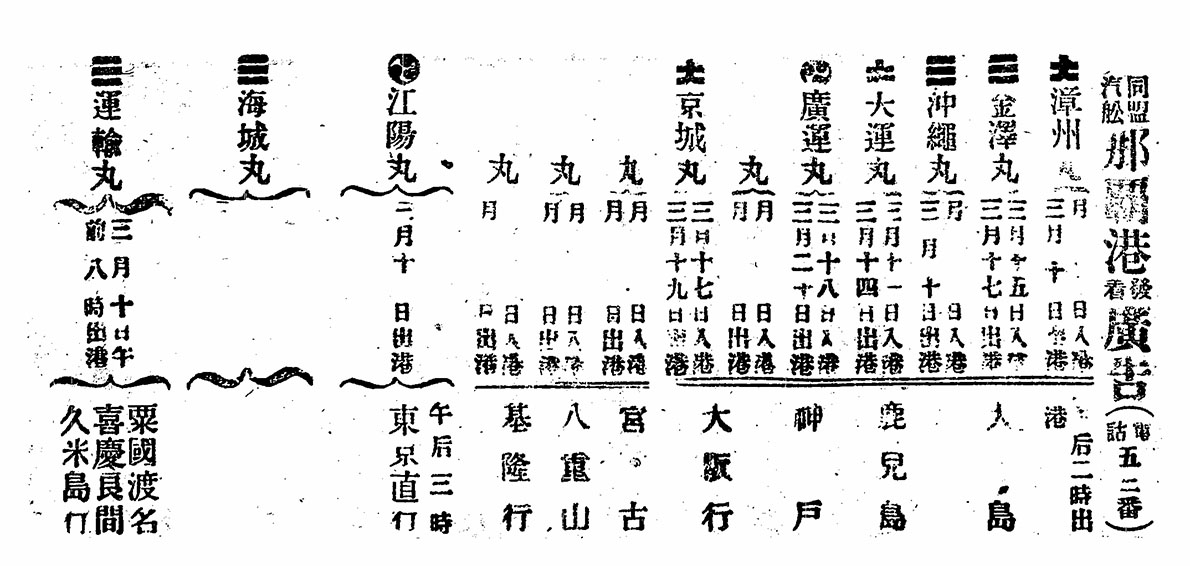 同盟汽舩那覇港發着廣告(電話五二番)
漳州丸
月 日入港
三月十 日出港
金澤丸
三月十五日入港
三月十七日出港
沖繩丸
月 日入港
三月十 日出港
大運丸
三月十一日入港
三月十四日出港
廣運丸
三月十八日入港
三月二十日出港
丸
月 日入港
月 日出港
京城丸
三月十七日入港
三月十九日出港
丸
月 日入港
月 日出港
丸
月 日入港
月 日出港
丸
月 日入港
日出港
后二時出
港
島
鹿兒島
神戶
大阪行
宮古
八重山
基隆行
江陽丸
三月十 日出港
午后三時
東京直行
海城丸
運輸丸
三月十日午
前八時出港
粟國渡名
喜慶良間
久米島行